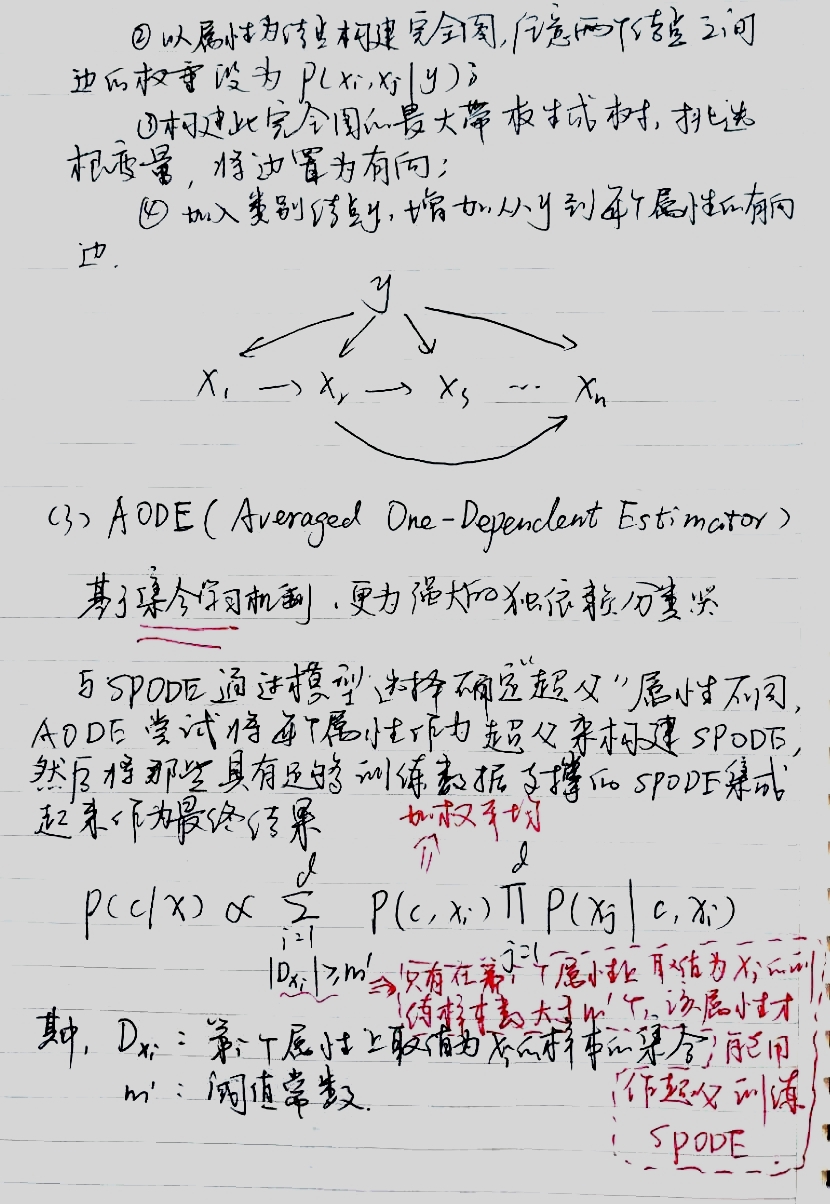 ② 以属性为结点构建完全图,任意两个结点之间
边的权重设为 P(xi,xj|y);
③构建此完全图的最大带权生成树,挑选
根变量,将边置为有向;
④ 加入类别结点y,增加从y到每个属性的有向
边.
y
X₁ → X₂ → X₃ … Xn
(3) AODE(Averaged One-Dependent Estimator)
基于集合学习机制,更为强大的独依赖分类器
与SPODE通过模型选择确定“超父”属性不同,
AODE 尝试将每个属性作为超父来构建SPODE,
然后将那些具有足够训练数据支撑的SPODE集成
起来作为最终结果
加权平均
⇑
P(c|x) ∝ ∑ᵢ₌₁ᵈ P(c,xi) ∏ⱼ₌₁ᵈ P(xj|c,xi)
|Dxi|≥m'
⇒只有在第i个属性上取值为xi的训
练样本数大于m'个,该属性才
能用
作超父训练
SPODE
其中,Dxi:第i个属性上取值为xi的样本的集合;
m':阈值常数.